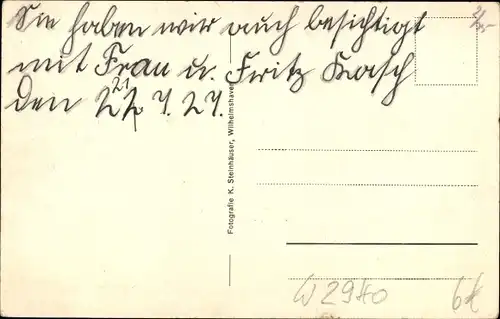 Sie haben wir auch besichtigt
mit Frau u. Fritz Kasch
den 22. 7. 27.
21
Fotografie K. Steinhäuser, Wilhelmshaven
W2980
6€